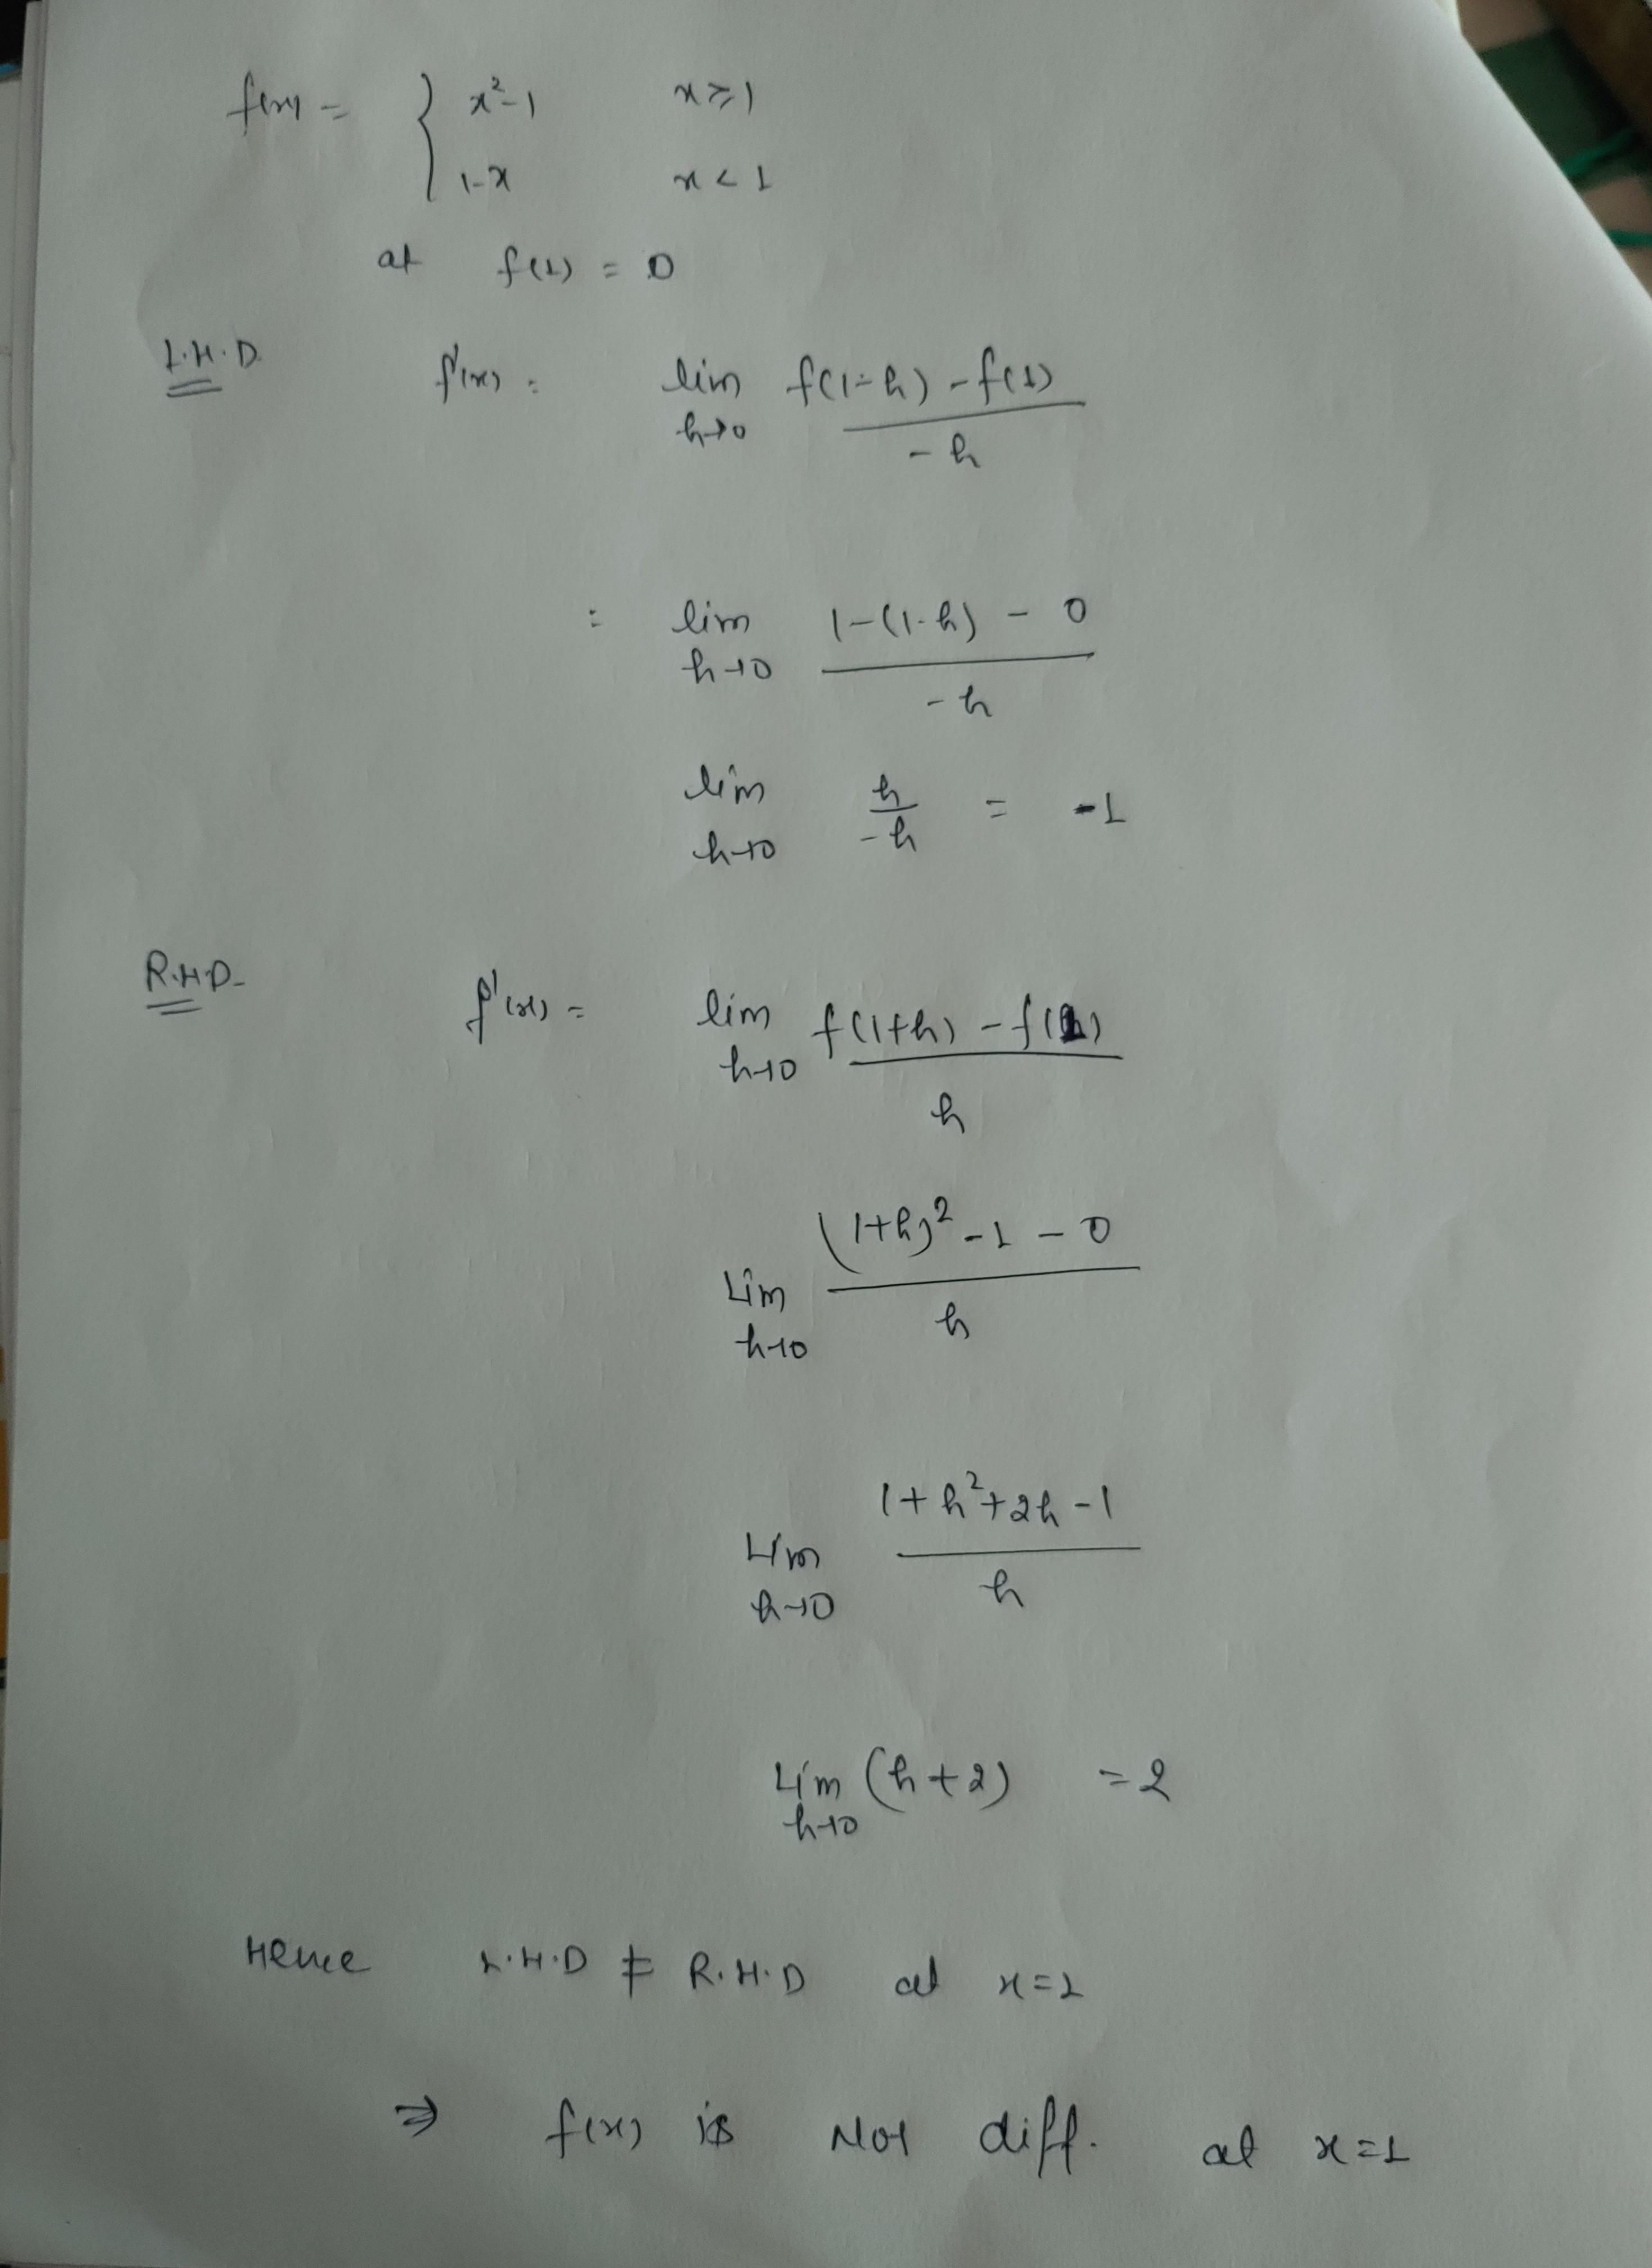 f(x) = { x²-1 x≥1
1-x x<1
at f(1) = 0
L.H.D. f'(x) = lim h→0 f(1-h) - f(1) / -h
= lim h→0 1-(1-h) - 0 / -h
lim h→0 h / -h = -1
R.H.D. f'(x) = lim h→0 f(1+h) - f(1) / h
Lim h→0 (1+h)² - 1 - 0 / h
Lim h→0 1+h²+2h-1 / h
Lim h→0 (h+2) = 2
Hence L.H.D ≠ R.H.D at x=1
⇒ f(x) is Not diff. at x=1